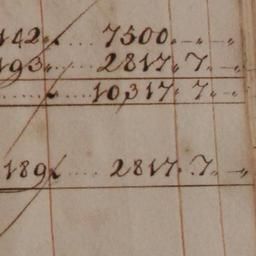 142 .... 7500 „ — „ — „
193 „ .... 2817 „ 7 „ — „
„ .... 10,317 „ 7 „ — „
189 .... 2817 „ 7 „ — „